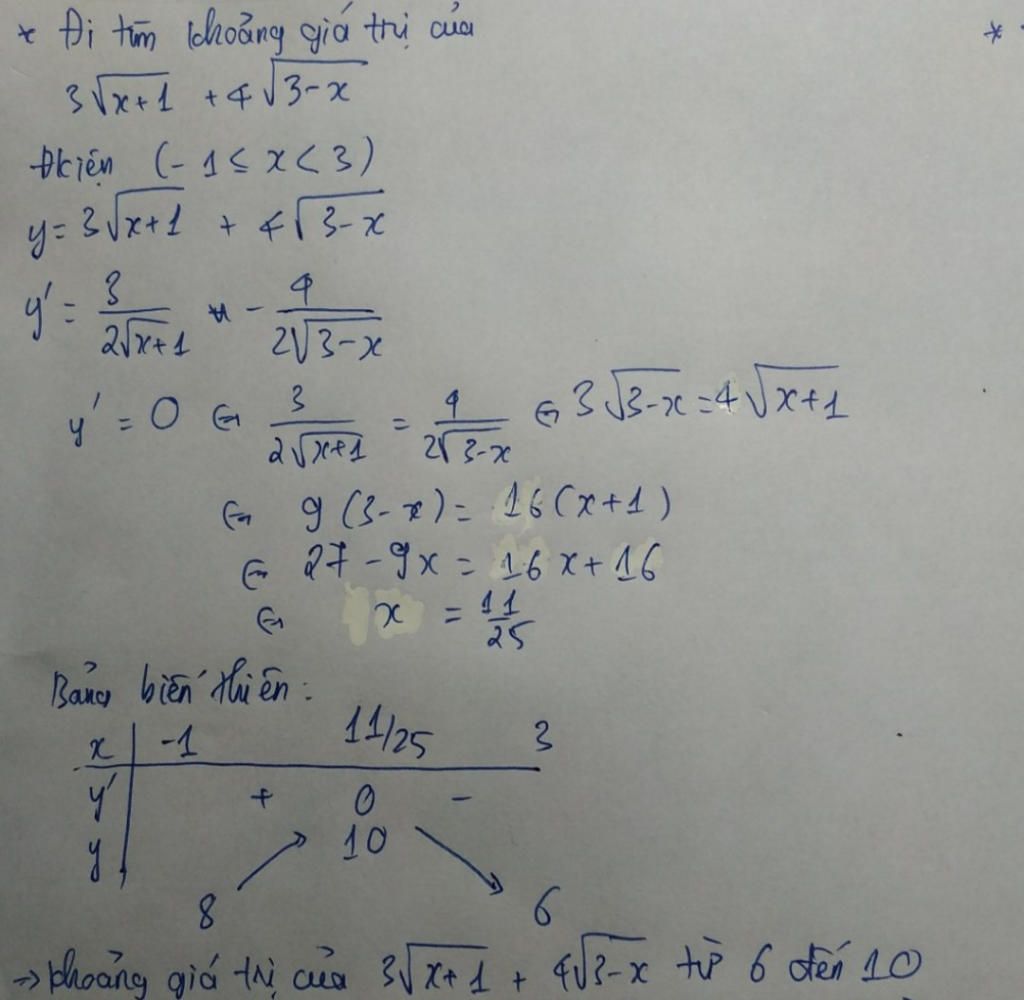 * Đi tìm khoảng giá trị của *
3√(x+1) + 4√(3-x)
Đkiện (-1 ≤ x < 3)
y = 3√(x+1) + 4√(3-x)
y' = 3/(2√(x+1)) - 4/(2√(3-x))
y' = 0 ⇔ 3/(2√(x+1)) = 4/(2√(3-x)) ⇔ 3√(3-x) = 4√(x+1)
⇔ 9(3-x) = 16(x+1)
⇔ 27 - 9x = 16x + 16
⇔ x = 11/25
Bảng biến thiên:
x | -1 11/25 3
y' + 0 -
y 10
8 6
→ khoảng giá trị của 3√(x+1) + 4√(3-x) từ 6 đến 10